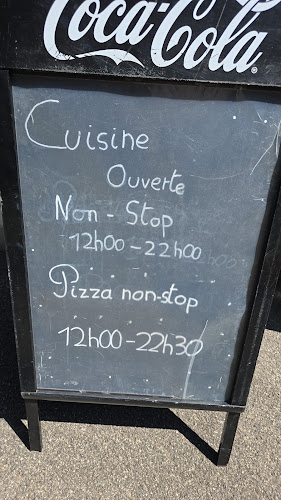 Coca-Cola
Cuisine
Ouverte
Non - Stop
12h00 - 22h00
Pizza non-stop
12h00 - 22h30